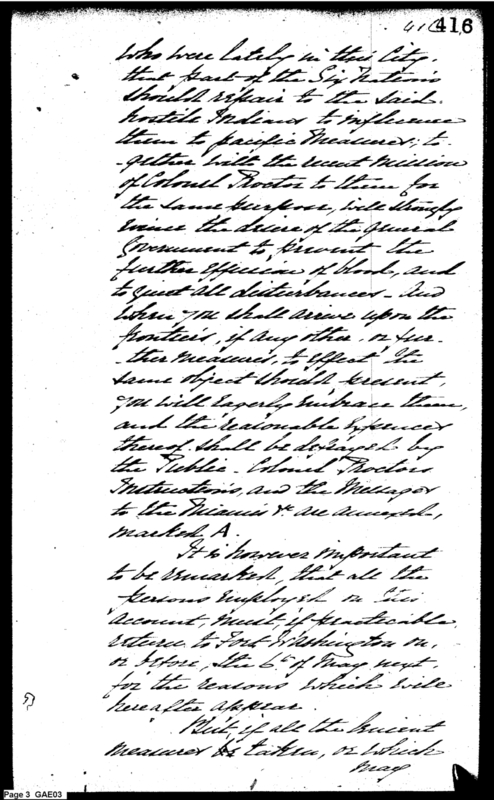 416
who were lately in this City,
that part of the Six Nations
should repair to the said
hostile Indians to influence
them to pacific Measures; to-
-gether with the recent mission
of Colonel Proctor to them for
the same purpose, will strongly
evince the desire of the general
Government to prevent the
further effusion of blood, and
to quiet all disturbances - And
when you shall arrive upon the
frontiers, if any other, or fur-
-ther measures, to effect the
same object should present,
you will eagerly embrace them,
and the reasonable expences
thereof shall be defrayed by
the Public - Colonel Proctors
Instructions, and the Messages
to the Miamis &c are annexed,
marked A.
It is however important
to be remarked, that all the
persons employed on this
account, must, if practicable,
return to Fort Washington on,
or before, the 6th of May next,
for the reasons which will
hereafter appear.
But, if all the lenient
measures be taken, or which
may
Page 3 GAE03